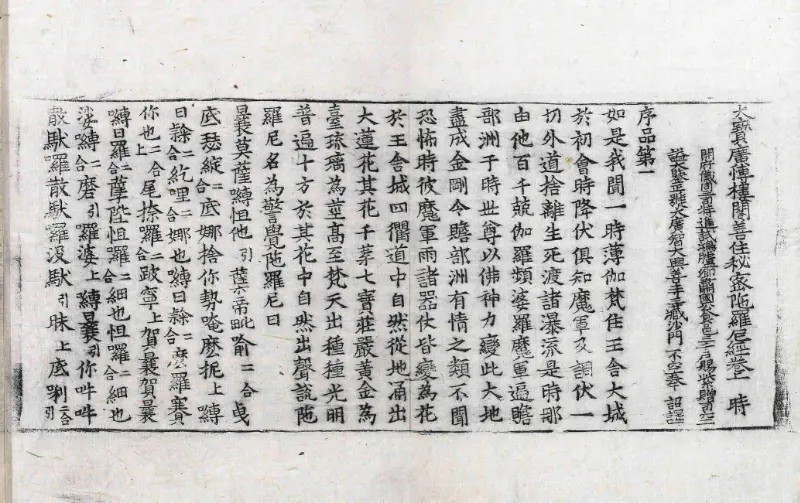 大寶廣博樓閣善住秘密陁羅尼經卷上 時
開府儀同三司特進試鴻臚卿肅國公食邑三千户賜紫贈司空
謚大鑒正號大廣智大興善寺三藏沙門 不空奉 詔譯
序品第一
如是我聞一時薄伽梵住王舍大城
於初會時降伏俱知魔軍及調伏一
切外道捨離生死渡諸瀑流是時那
由他百千兢伽羅頻婆羅魔軍遍贍
部洲于時世尊以佛神力變此大地
盡成金剛令贍部洲有情之類不聞
恐怖時彼魔軍雨諸器仗皆變為花
於王舍城四衢道中自然從地涌出
大蓮花其花千葉七寶莊嚴黃金為
臺琉璃為莖高至梵天出種種光明
普遍十方於其花中自然出聲說陁
羅尼名為警覺陁羅尼曰
曩莫薩嚩怛他引蘖帝毗喻二合曳
底瑟綻二合底娜捨你勢唵麽抳上嚩
日隸二合紇哩二合娜也嚩日隸二合麽羅賽
你也二合尾捺羅二合跛寧上賀曩賀曩
嚩日羅二合孽陛怛羅二合細也怛羅二合細也
娑嚩二合磨引羅婆上嚩曩引你吽吽
散馱羅散馱羅沒馱引昧上底唎二合引